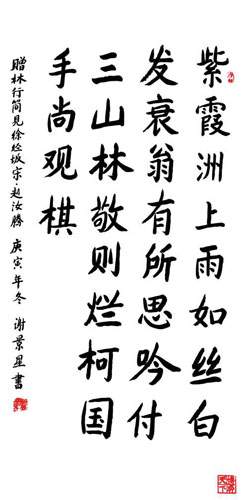 紫霞洲上雨如丝白
发衰翁有所思吟付
三山林敬则烂柯国
手尚观棋
赠林行简见徐经坂宋·赵汝腾 庚寅年冬 谢景星书